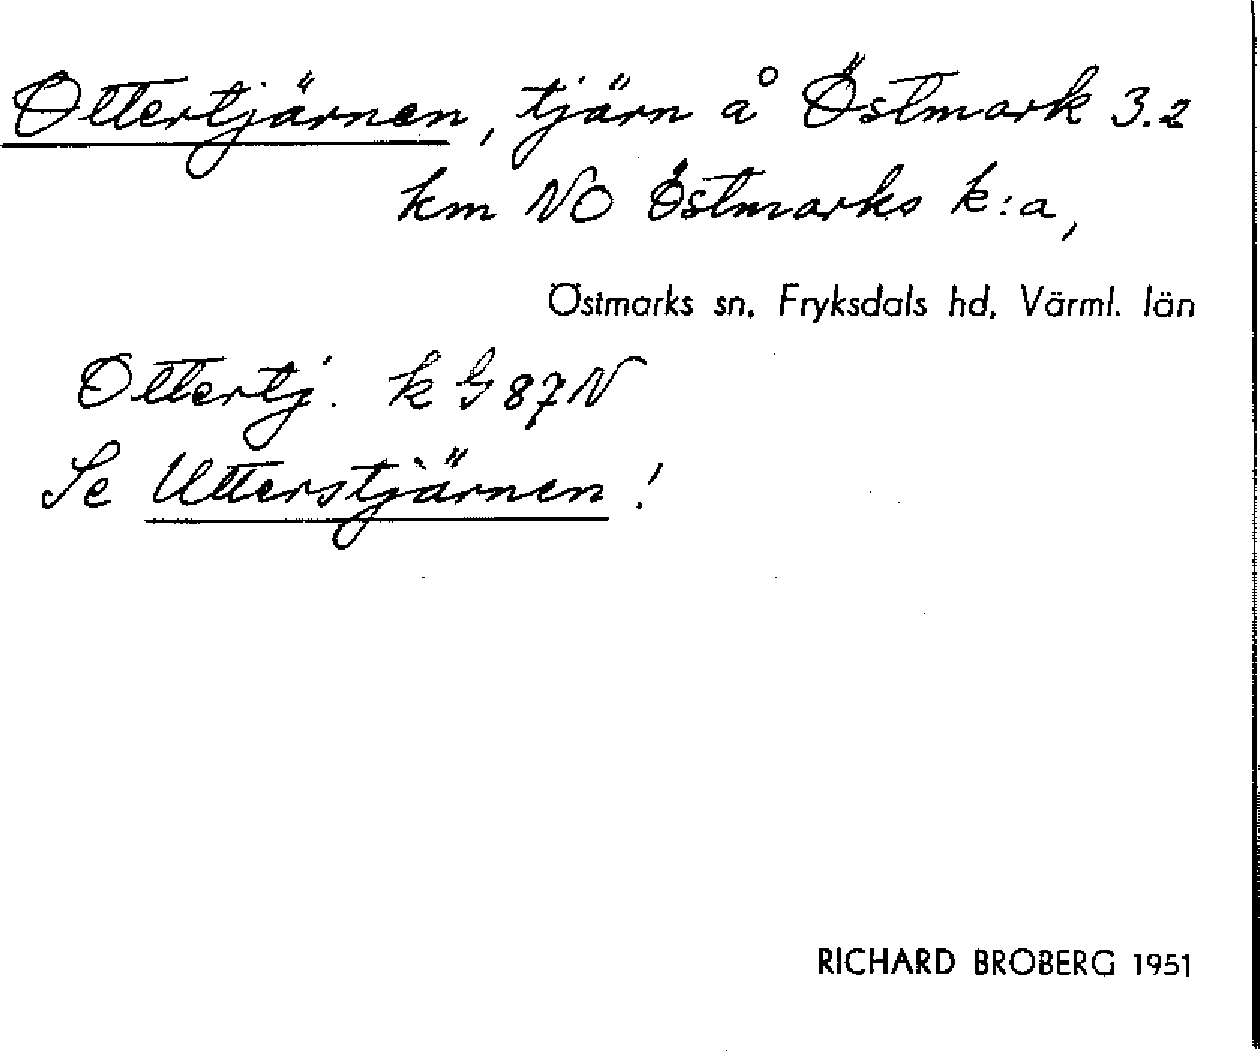 Ottertjärnen, tjärn å Östmark 3.2
km NO Östmarks k:a,
Östmarks sn. Fryksdals hd. Värml. län
Ottertj. k G 87 N
Se Utterstjärnen!
RICHARD BROBERG 1951